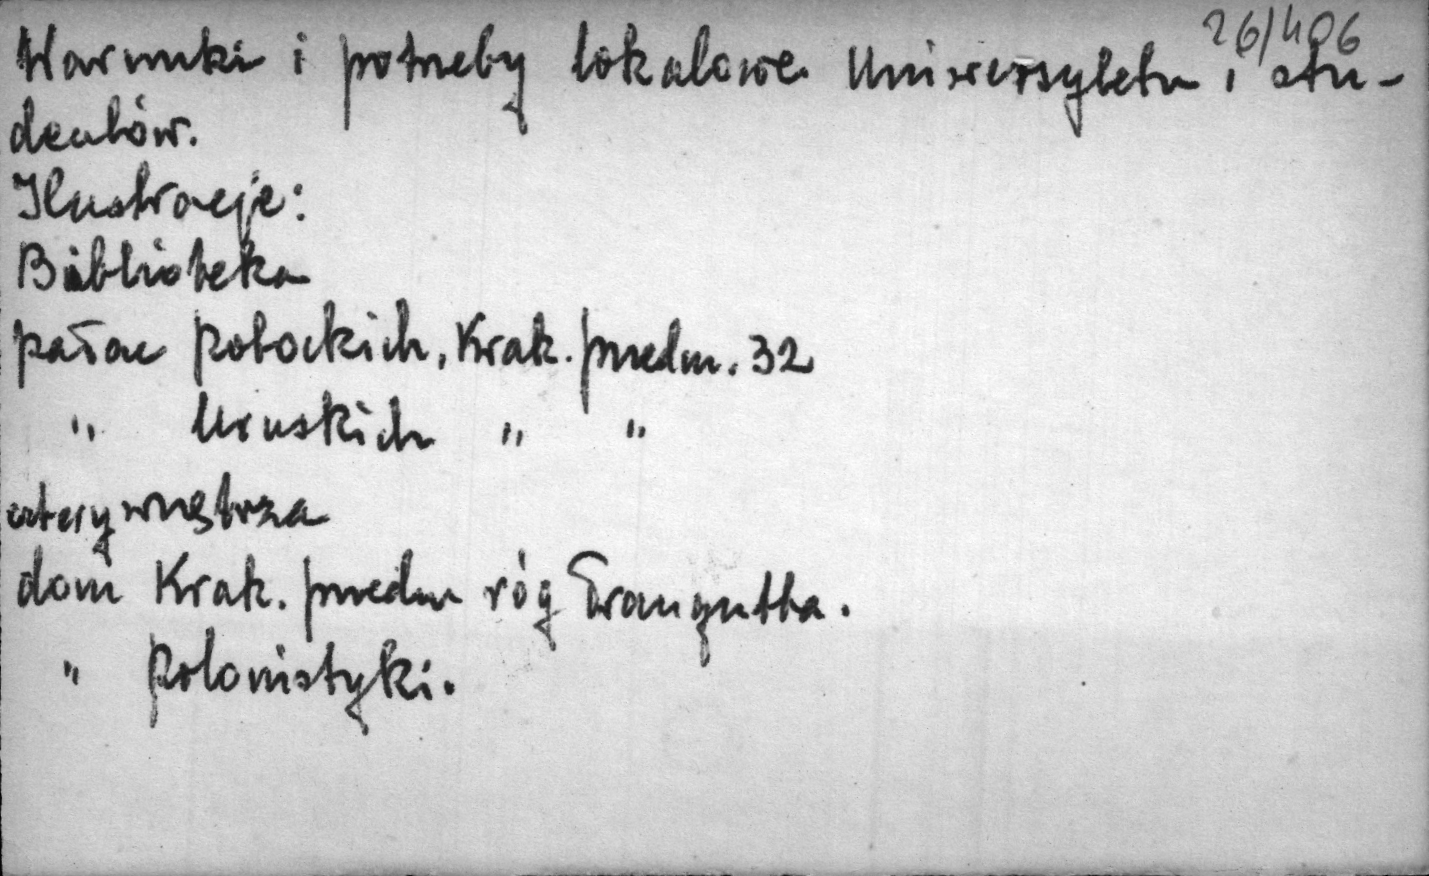 26/406
Warunki i potrzeby lokalowe Uniwersytetu i stu-
dentów.
Ilustracje:
Biblioteka
pałac Potockich, Krak. przedm. 32
" Uruskich " "
cztery wnętrza
dom Krak. przedm róg Traugutta.
" Polonistyki.